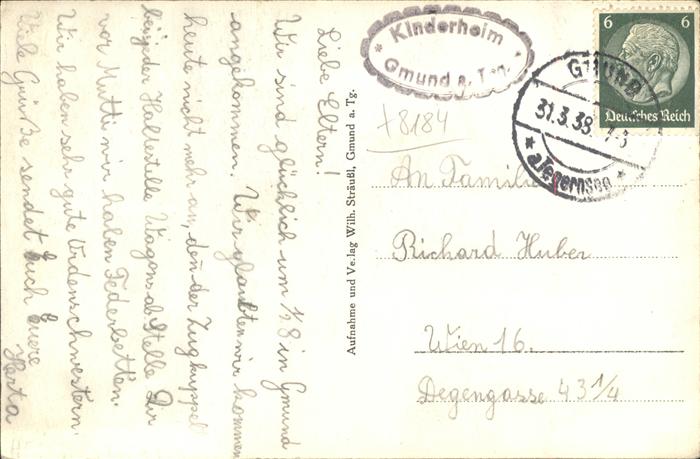 Liebe Eltern!
Wir sind glücklich um 1/8 in Gmund
angekommen. Wir glaubten wir kommen
heute nicht mehr an, den̄ der Zug kuppel
bei jeder Haltestelle Wagons ab. Stelle Dir
vor Mutti wir haben Federbetten.
Wir haben sehr gute Ordenschwestern.
Viele Grüße sendet Euch Euere
Herta
Aufnahme und Verlag Wilh. Sträußl, Gmund a. Tg.
* Kinderheim *
Gmund a. Teg.
+8184
6 6
Deutsches Reich
Gmund
31.3.38
* a. Tegernsee *
An Familie
Richard Huber
Wien 16.
Degengasse 43 1/4